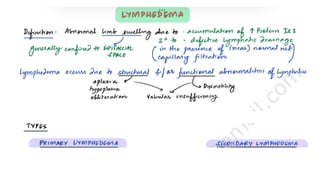 LYMPHEDEMA
Definition: Abnormal limb swelling due to - accumulation of ↑ Protein ISF
2° to - defective lymphatic drainage
generally confined to EPIFASCIAL SPACE
(in the presence of (near) normal net capillary filtration)
Lymphedema occurs due to structural &/or functional abnormalities of lymphatics
aplasia
hypoplasia
obliteration
Valvular insufficiency
Dysmotility
TYPES
PRIMARY LYMPHEDEMA
SECONDARY LYMPHEDEMA